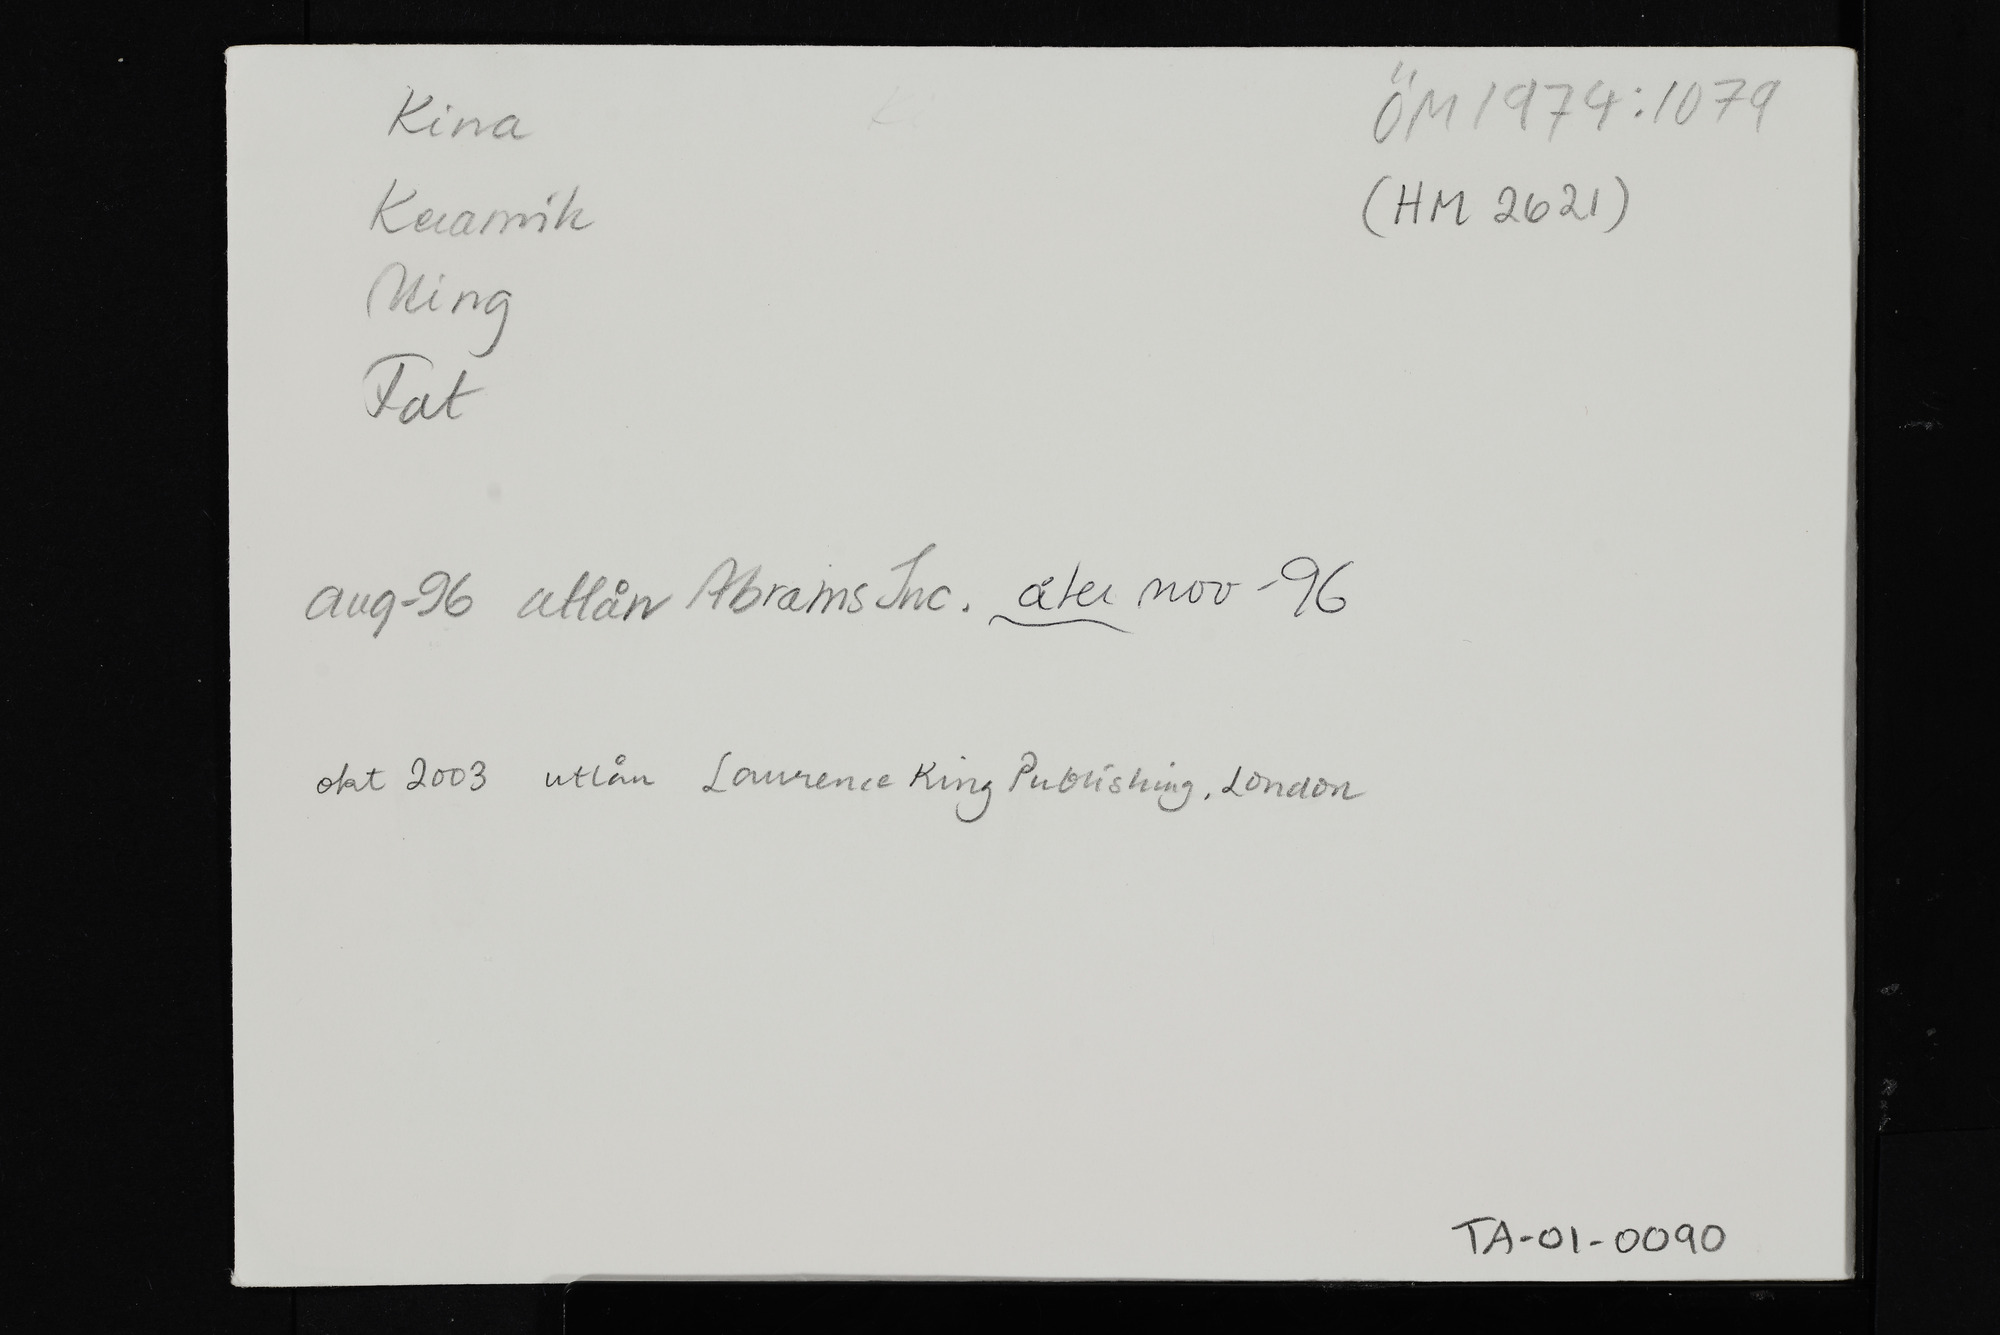 Kina
ÖM 1974:1079
Keramik
(HM 2621)
Ming
Fat
aug-96 utlån Abrams Inc. åter nov-96
okt 2003 utlån Laurence King Publishing, London
TA-01-0090